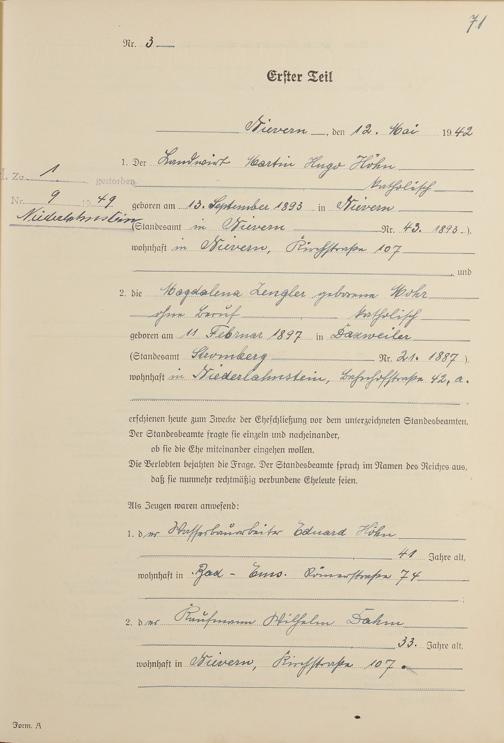 71
Nr. 3
Erster Teil
Nievern, den 12. Mai 1942
1. Der Landwirt Martin Hugo Höhn
katholisch
Zu 1 gestorben
Nr. 9 1949
Niederlahnstein
geboren am 13. September 1893 in Nievern
(Standesamt in Nievern Nr. 43. 1893.).
wohnhaft in Nievern, Kirchstraße 107
, und
2. die Magdalena Zengler geborene Mohr
ohne Beruf katholisch
geboren am 11 Februar 1897 in Daxweiler
(Standesamt Stromberg Nr. 21. 1887).
wohnhaft in Niederlahnstein, Bahnhofstraße 42, a.
erschienen heute zum Zwecke der Eheschließung vor dem unterzeichneten Standesbeamten.
Der Standesbeamte fragte sie einzeln und nacheinander,
ob sie die Ehe miteinander eingehen wollen.
Die Verlobten bejahten die Frage. Der Standesbeamte sprach im Namen des Reiches aus,
daß sie nunmehr rechtmäßig verbundene Eheleute seien.
Als Zeugen waren anwesend:
1. der Wasserbauarbeiter Eduard Höhn
41 Jahre alt,
wohnhaft in Bad-Ems. Römerstraße 74
2. der Kaufmann Wilhelm Dahm
33. Jahre alt.
wohnhaft in Nievern, Kirchstraße 107.
Form. A